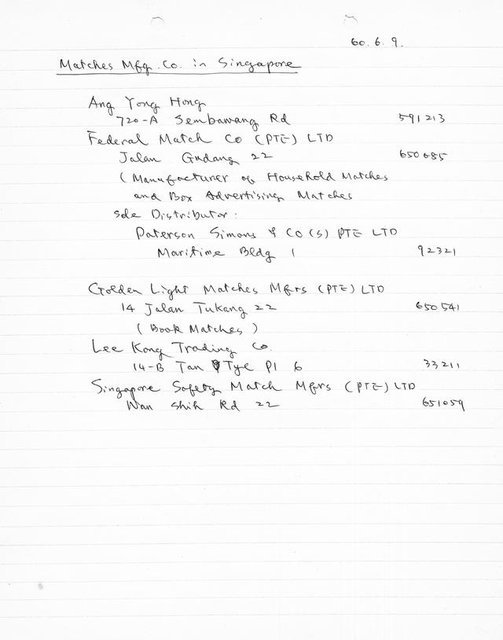 60.6.9.
Matches Mfg. Co. in Singapore
Ang Yong Hong
720-A Sembawang Rd 591213
Federal Match Co (PTE) LTD
Jalan Gudang 22 650685
(Manufacturer of Household Matches
and Box Advertising Matches
Sole Distributor:
Paterson Simons & Co (S) PTE LTD
Maritime Bldg 1 92321
Golden Light Matches Mfrs (PTE) LTD
14 Jalan Tukang 22 650541
(Book Matches)
Lee Kong Trading Co
14-B Tan Tye Pl 6 33211
Singapore Safety Match Mfrs (PTE) LTD
Wan Shih Rd 22 651059